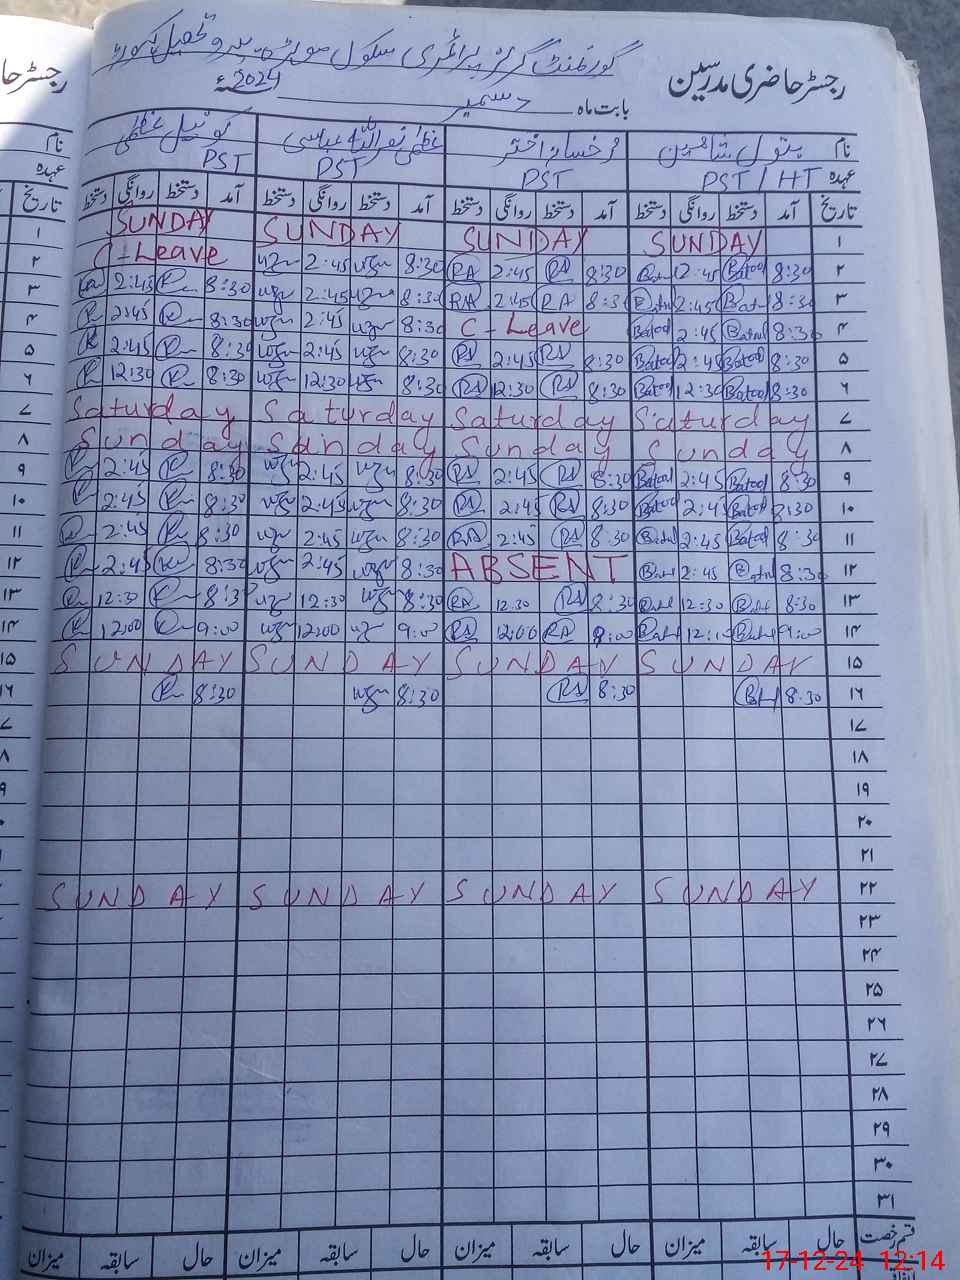 رجسٹر حاضری مدرسین
گورنمنٹ گرلز پرائمری سکول
بابت ماہ دسمبر 2024ء
نام بتول شاہین
عہدہ PST / HT PST PST PST
تاریخ آمد دستخط روانگی دستخط آمد دستخط روانگی دستخط آمد دستخط روانگی دستخط آمد دستخط روانگی دستخط
۱ SUNDAY SUNDAY SUNDAY SUNDAY
۲ 8:30 Batool 2:45 8:30 RA 2:45 RA 8:30 2:45 C-Leave
۳ 8:30 Batul 2:45 Batul 8:30 RA 2:45 RA 8:30 2:45 8:30 2:45
۴ 8:30 Batul 2:45 Batool C-Leave 8:30 2:45 8:30 2:45
۵ 8:30 Batool 2:45 Batool 8:30 RA 2:45 RA 8:30 2:45 8:30 2:45
۶ 8:30 Batool 12:30 Batool 8:30 RA 12:30 RA 8:30 12:30 8:30 12:30
۷ Saturday Saturday Saturday Saturday
۸ Sunday Sunday Sunday Sunday
۹ 8:30 Batool 2:45 Batool 8:30 RA 2:45 RA 8:30 2:45 8:30 2:45
۱۰ 8:30 Batool 2:45 Batool 8:30 RA 2:45 RA 8:30 2:45 8:30 2:45
۱۱ 8:30 Batool 2:45 Batul 8:30 RA 2:45 RA 8:30 2:45 8:30 2:45
۱۲ 8:30 Batul 2:45 ABSENT 8:30 2:45 8:30 2:45
۱۳ 8:30 12:30 8:30 RA 12:30 RA 8:30 12:30 8:30 12:30
۱۴ 9:00 9:00 RA 12:00 RA 9:00 12:00 9:00 12:00
۱۵ SUNDAY SUNDAY SUNDAY SUNDAY
۱۶ 8:30 8:30 RA 8:30 8:30
۱۷
۱۸
۱۹
۲۰
۲۱
۲۲ SUNDAY SUNDAY SUNDAY SUNDAY
۲۳
۲۴
۲۵
۲۶
۲۷
۲۸
۲۹
۳۰
۳۱
قسم رخصت حال سابقہ میزان حال سابقہ میزان حال سابقہ میزان حال سابقہ میزان
17-12-24 12:14